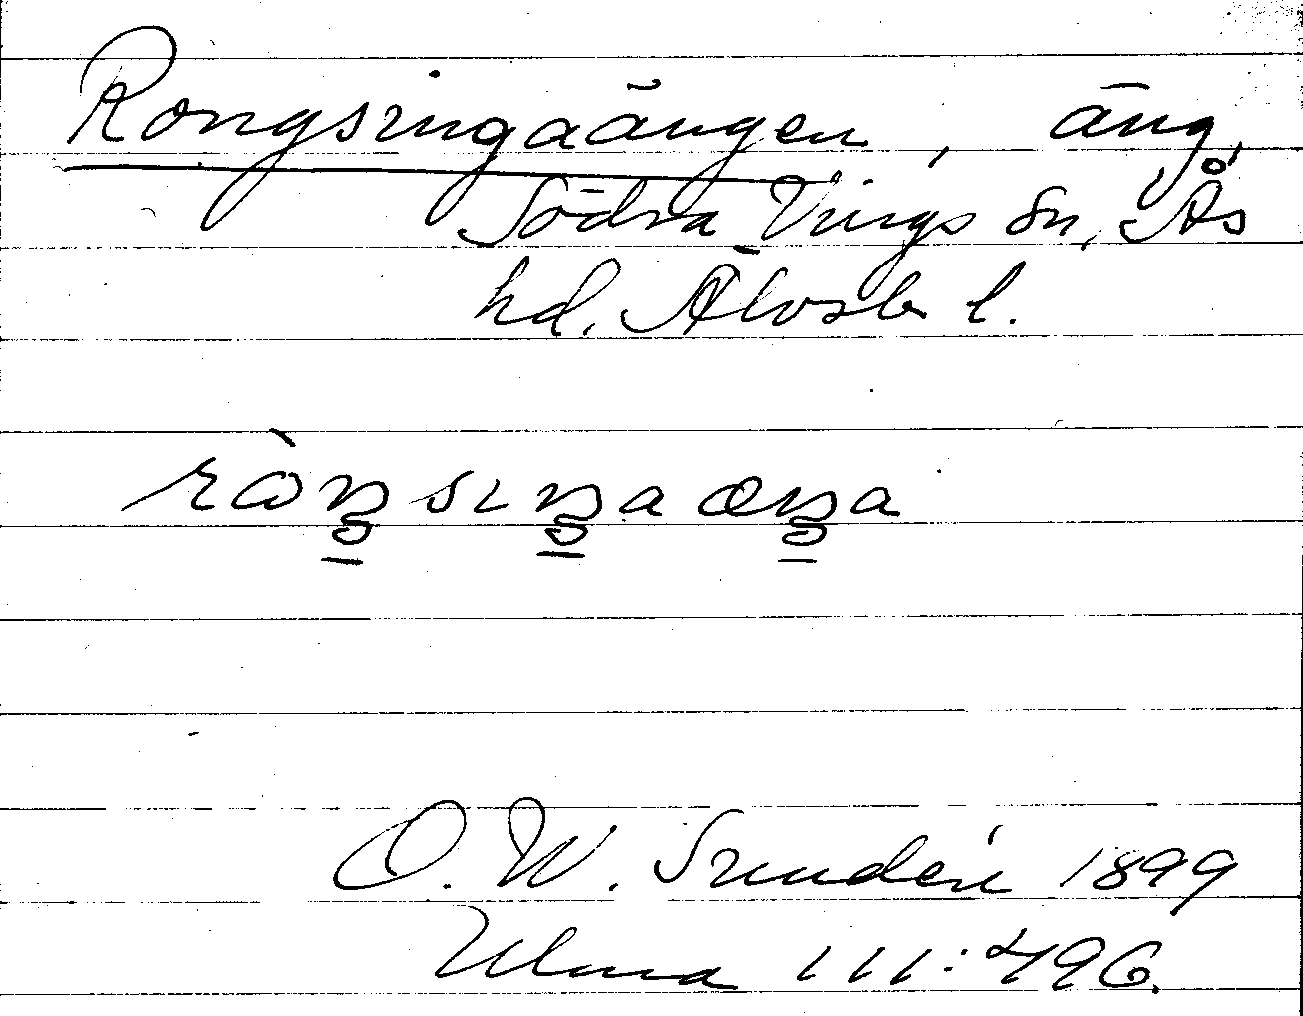 Rongsingaängen, äng,
Södra Vings sn, Ås
hd. Älvsb l.
ròŋsıŋa æŋa
O. W. Sundén 1899
Ulma 111:496.